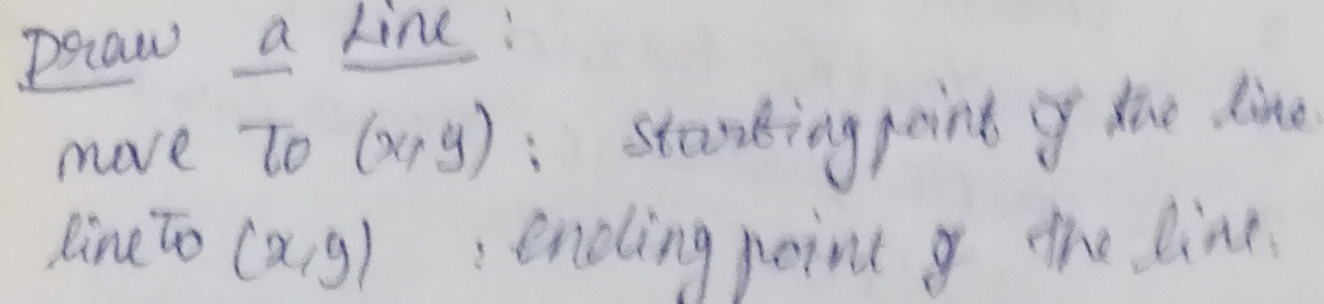 Draw a Line :
move To (x, y) : starting point of the line.
line To (x, y) : ending point of the line.